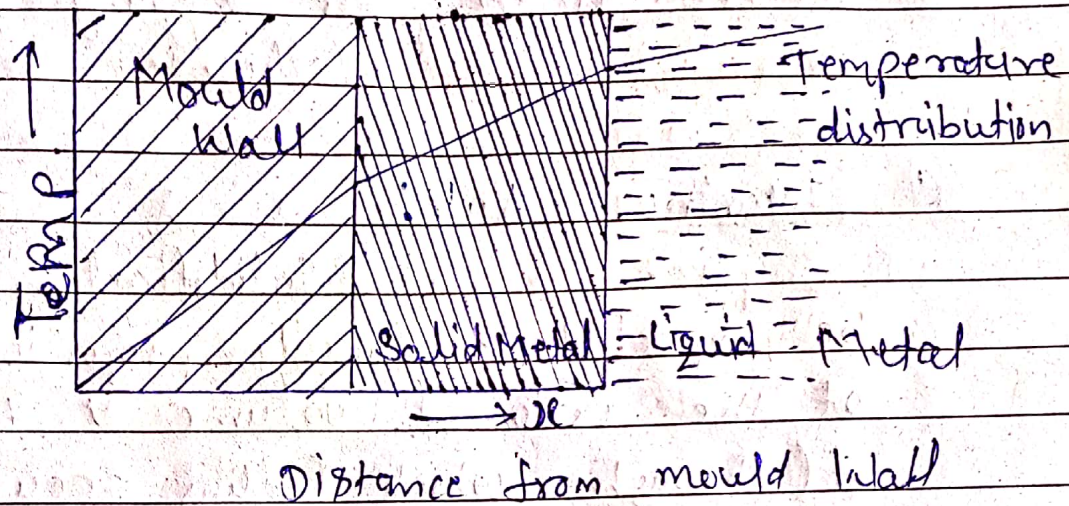 Mould
Wall
Temp
Temperature
distribution
Solid Metal
Liquid Metal
x
Distance from mould Wall